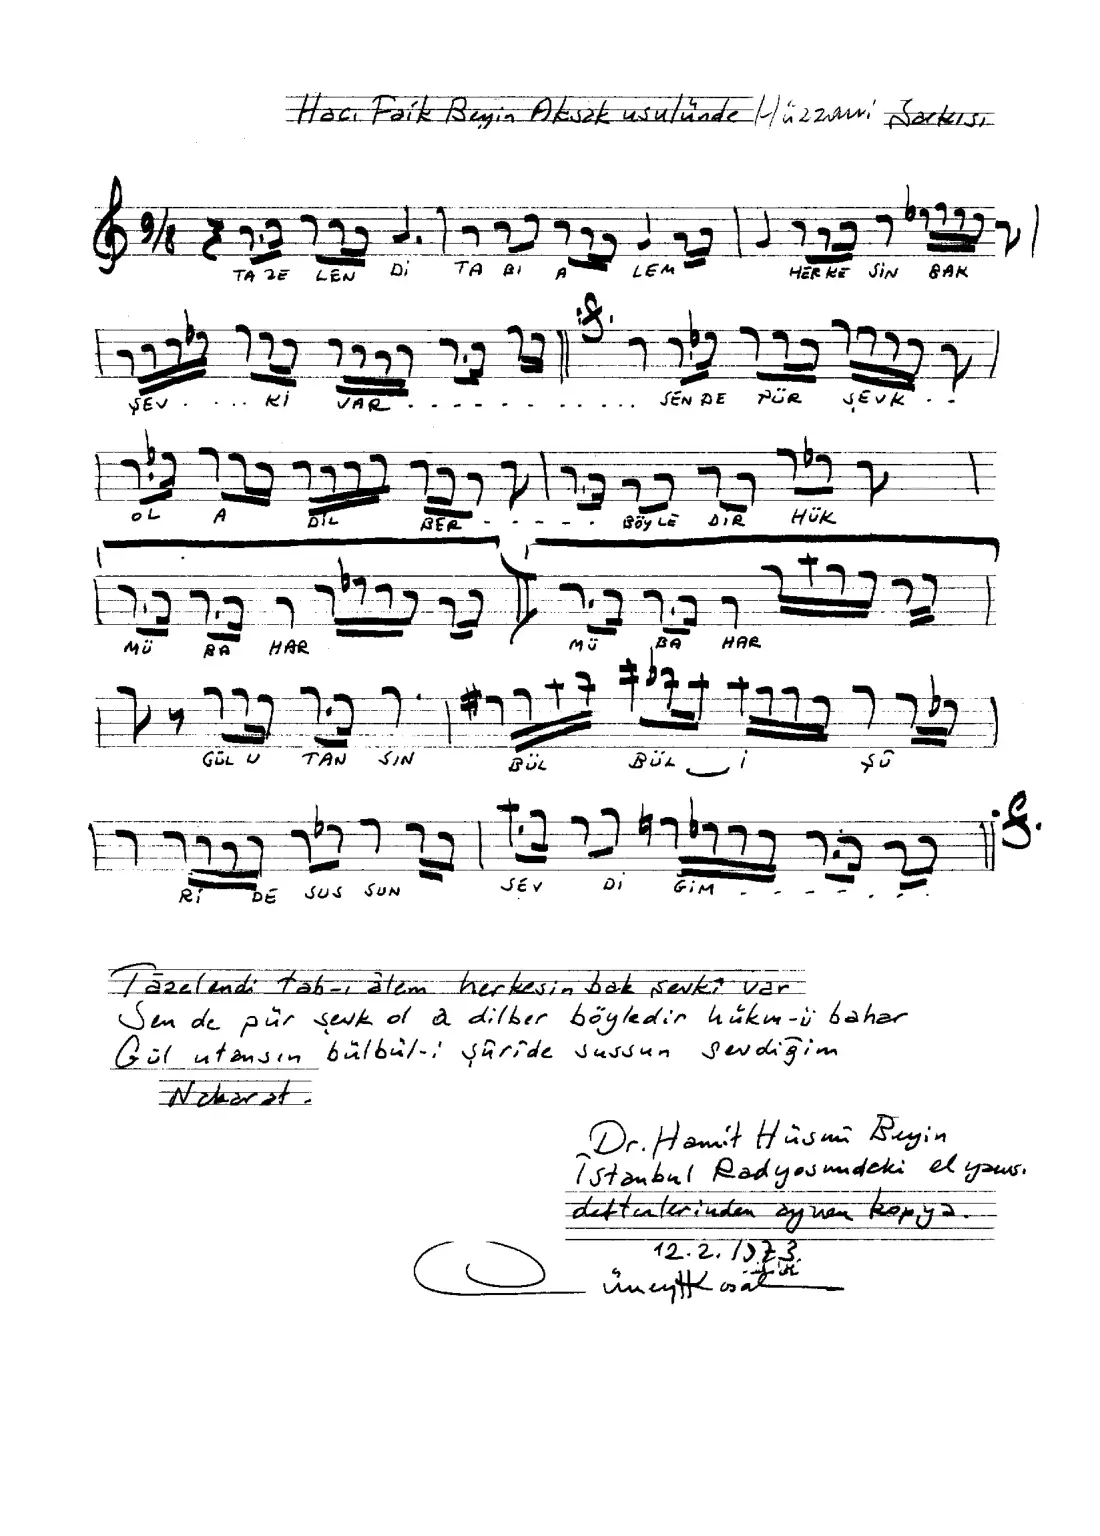 Hacı Faik Beyin Aksak usulünde Hüzzam Şarkısı
9/8
TA ZE LEN Dİ TA BI A LEM HER KE SİN BAK
ŞEV . ... Kİ VAR . - - - - - - ... . SEN DE PÜR ŞEVK - -
OL A DİL BER - - - - - BÖYLE DİR HÜK
MÜ BA HAR MÜ BA HAR
GÜL U TAN SIN BÜL BÜL İ ŞÛ
Rİ DE SUS SUN SEV Dİ GİM - - - - - .
Tâzelendi tab-ı âlem herkesin bak şevkî var
Sen de pür şevk ol a dilber böyledir hükm-ü bahar
Gül utansın bülbül-i şûrîde sussun sevdiğim
Nakarat.
Dr. Hamit Hüsnü Beyin
İstanbul Radyosundeki el yazısı
defterlerinden aynen kopya.
12.2.1973
Cüneyt Kosal